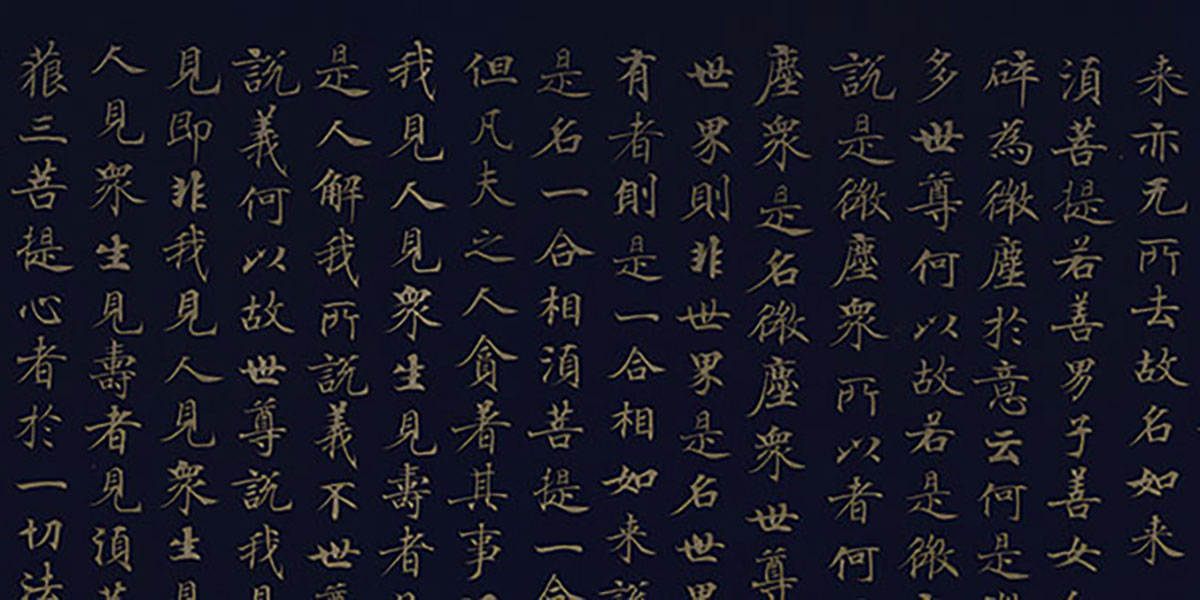 来亦无所去故名如来
須菩提若善男子善女
碎為微塵於意云何是
多世尊何以故若是微
說是微塵眾所以者何
塵眾是名微塵眾世尊
世界則非世界是名世界
有者則是一合相如来說
是名一合相須菩提一合
但凡夫之人貪著其事
我見人見眾生見壽者
是人解我所說義不世尊
說義何以故世尊說我見
見即非我見人見眾生見
人見眾生見壽者見須菩
藐三菩提心者於一切法